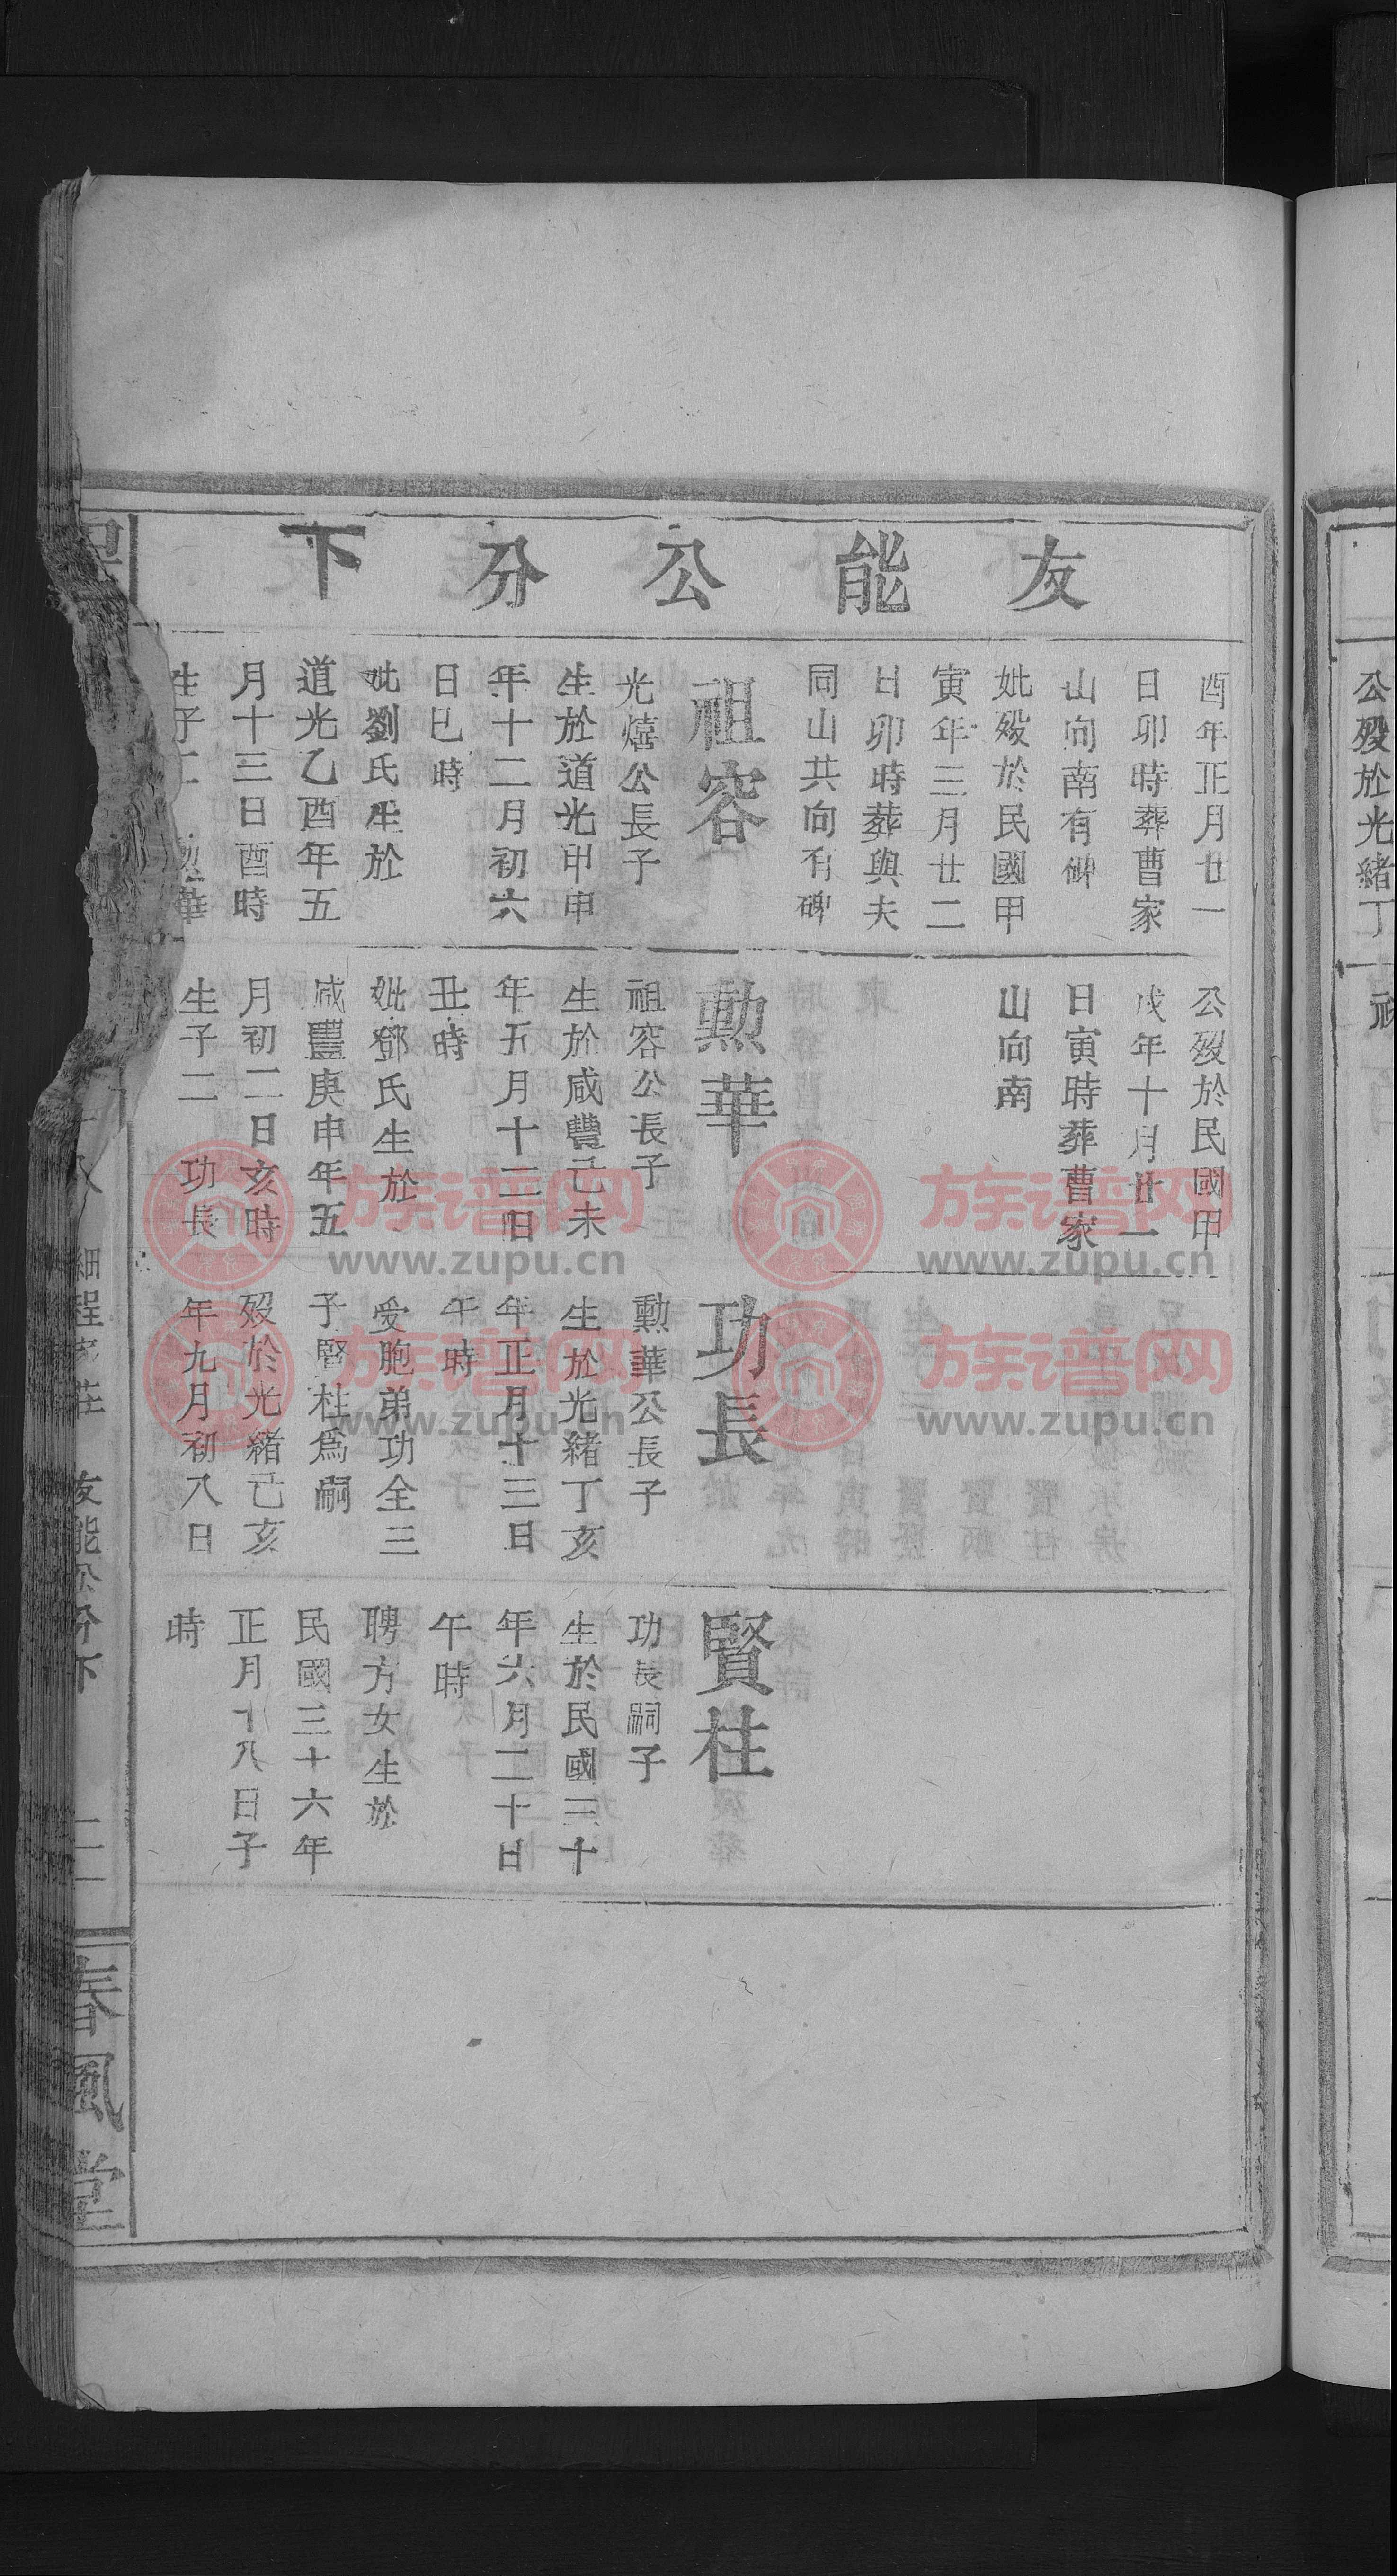 友能公分下
酉年正月廿一
日卯時葬曹家
山向南有碑
妣歿於民國甲
寅年三月廿二
日卯時葬與夫
同山共向有碑
祖容
光熺公長子
生於道光甲申
年十二月初六
日巳時
妣劉氏生於
道光乙酉年五
月十三日酉時
生子 華
公歿於民國甲
戌年十月廿一
日寅時葬曹家
山向南
勲華
祖容公長子
生於咸豐己未
年五月十二日
丑時
妣鄧氏生於
咸豐庚申年五
月初二日亥時
生子二 功長
功長
勲華公長子
生於光緒丁亥
年正月十三日
午時
受胞弟功全三
子賢柱爲嗣
歿於光緒己亥
年九月初八日
賢柱
功長嗣子
生於民國三十
年六月二十日
午時
聘方女生於
民國三十六年
正月十八日子
時
細程家莊 友能公分下
春風堂
公歿於光緒丁
族谱网
www.zupu.cn
族谱网
www.zupu.cn
族谱网
www.zupu.cn
族谱网
www.zupu.cn